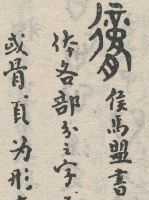 侯馬盟書
体各部分之字
或骨、頁为形